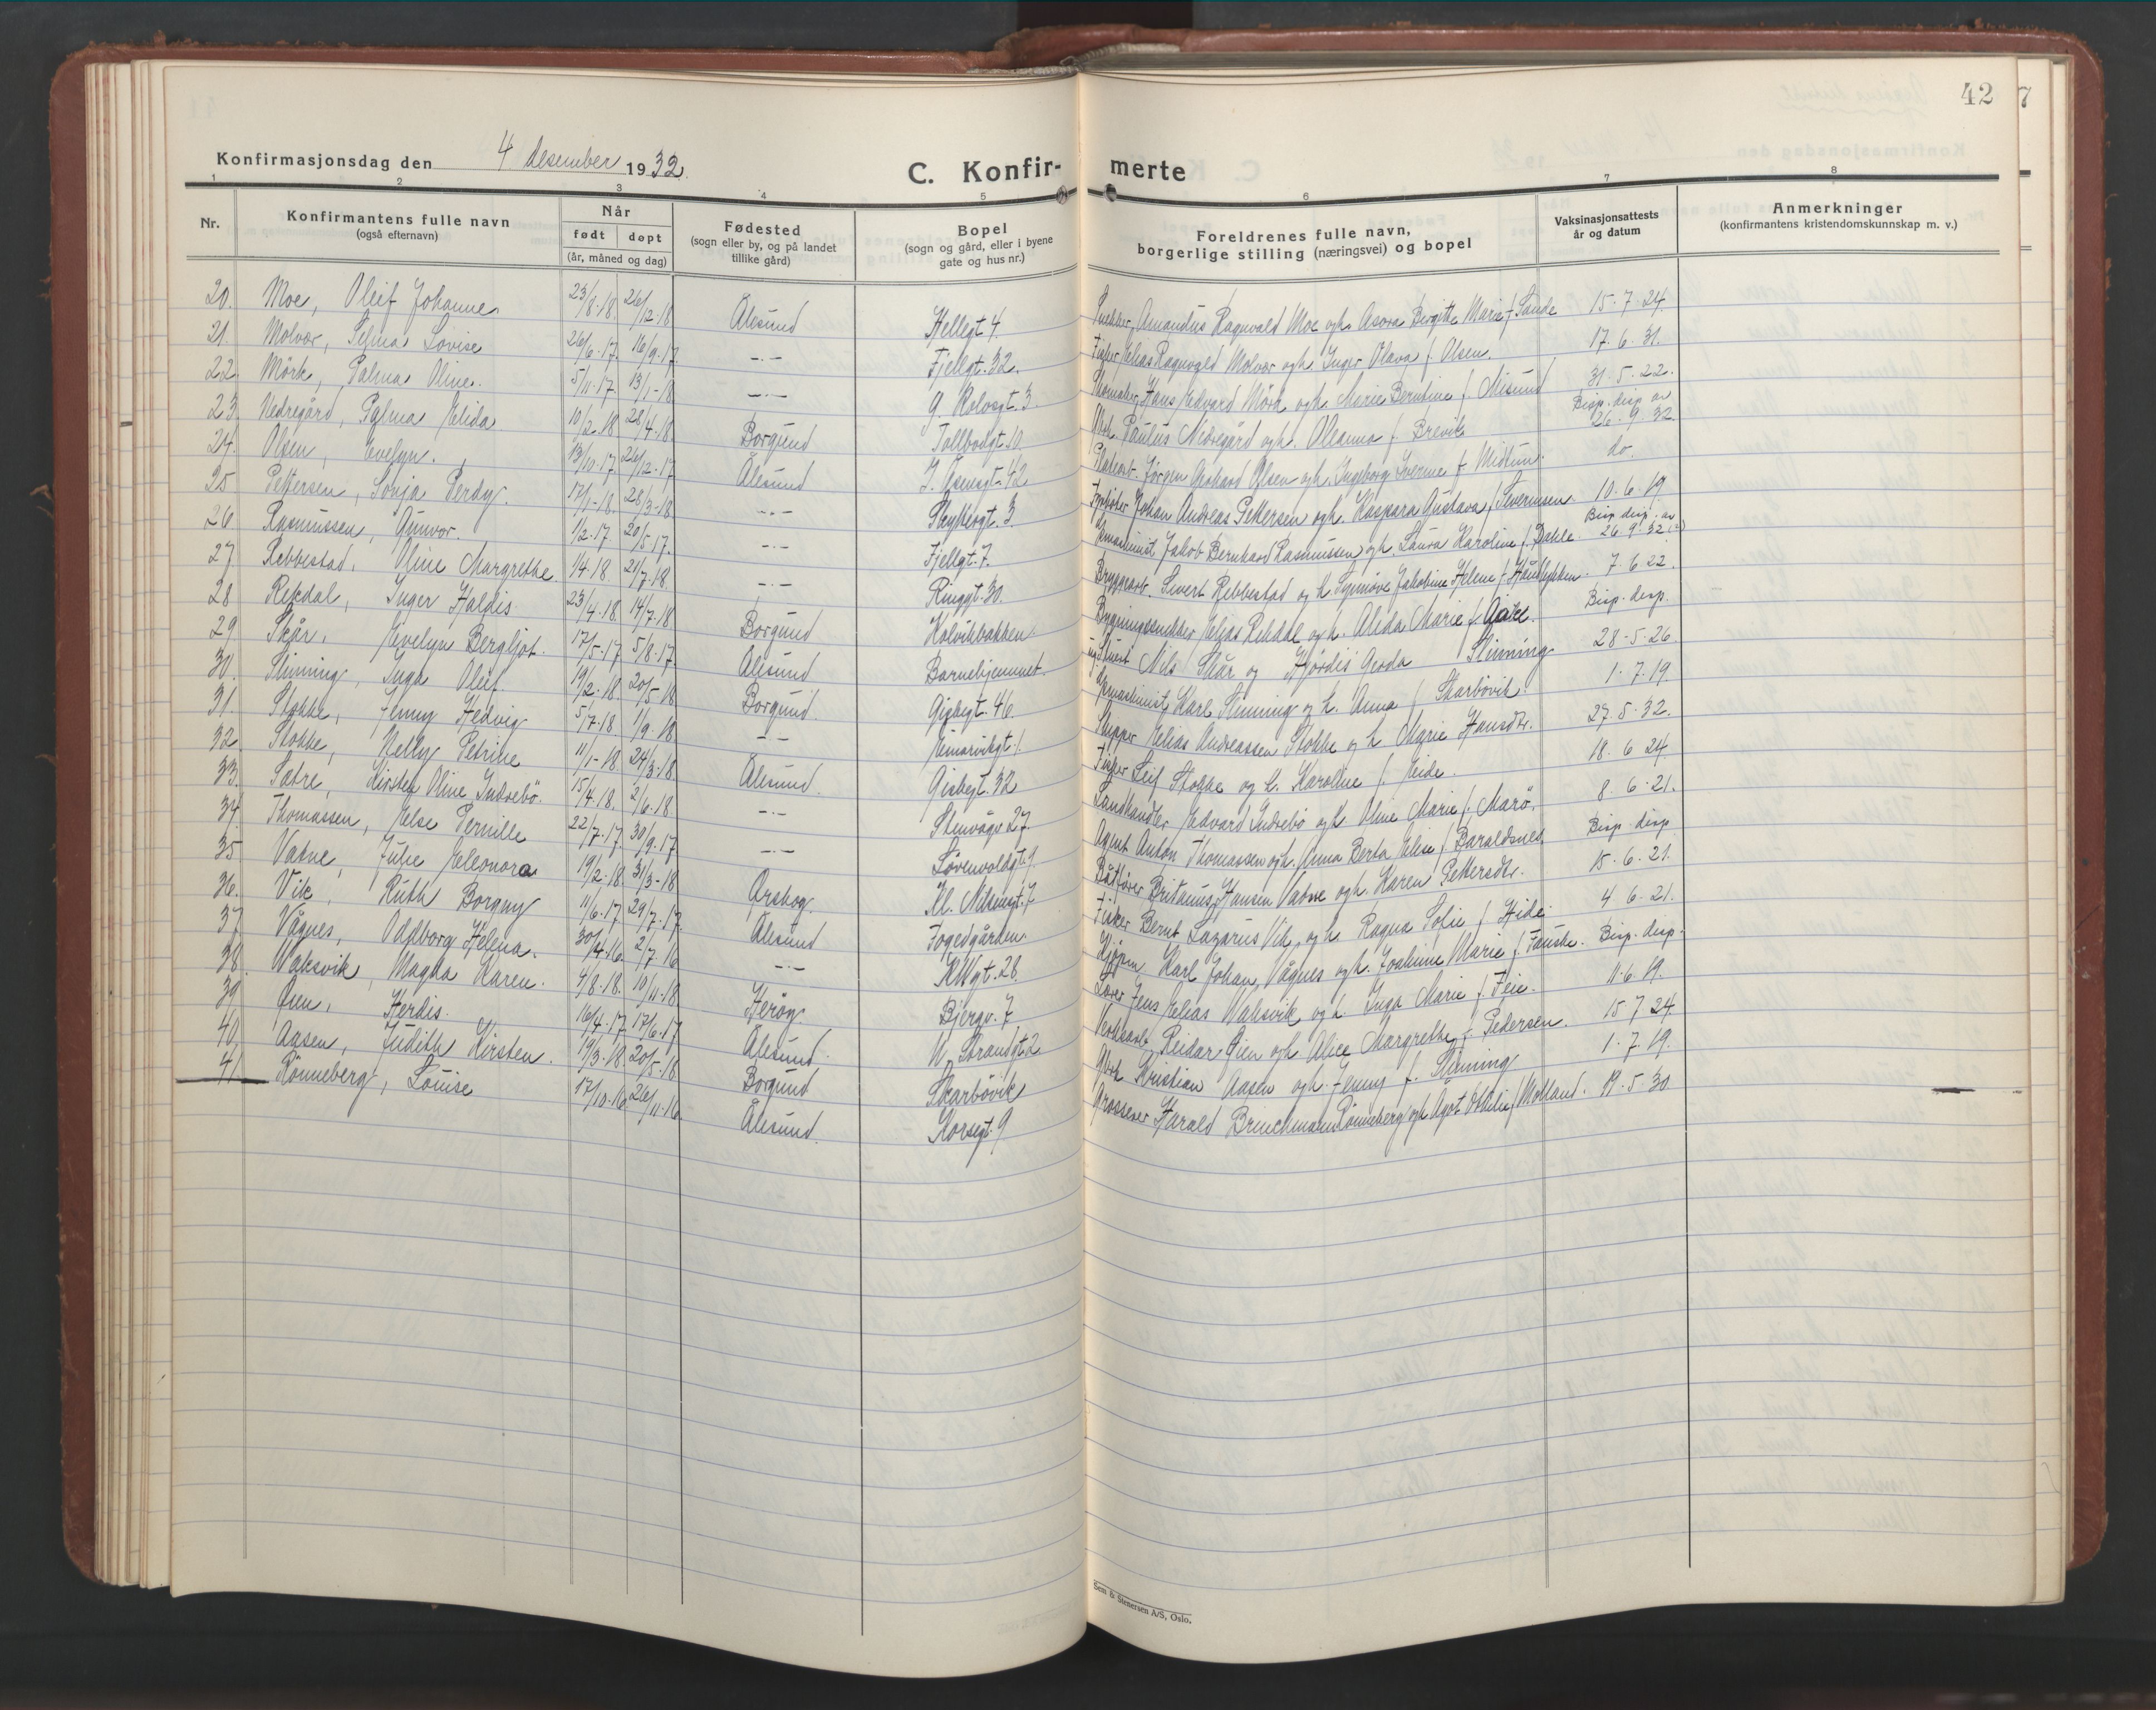 42
7
Konfirmasjonsdag den 4 desember 1932.
C. Konfir-
merte
1 2 3 4 5 6 7 8
Nr.
Konfirmantens fulle navn
(også efternavn)
Når
født døpt
(år, måned og dag)
Fødested
(sogn eller by, og på landet
tillike gård)
Bopel
(sogn og gård, eller i byene
gate og hus nr.)
Foreldrenes fulle navn,
borgerlige stilling (næringsvei) og bopel
Vaksinasjonsattests
år og datum
Anmerkninger
(konfirmantens kristendomskunnskap m. v.)
20. Moe, Oleif Johanne 23/8.18. 26/12.18 Ålesund Hellegt. 4. Snekker, Amandus Ragnvald Moe og h. Asora Birgitte Marie f. Sande 15.7.24.
21. Molvær, Selma Lovise 26/6.17. 16/9.17. —.— Fjellgt. 32. Fisker Elias Ragnvald Molvær og h. Inger Olava f. Olsen. 17.6.31.
22. Mörk, Palma Oline. 5/11.17. 13/1-18 —.— G. Rolvsgt. 3. Skomaker Hans Edvard Mörk og h. Marie Berntine f. Misund 31.5.22.
23. Nedregård, Palma Elida 10/2.18 28/4.18. Borgund Tollbodgt. 10. Arb. Paulus Nedregård og h. Oleanna f. Brevik Bisp. disp. av 26.9.32
24. Olsen, Evelyn. 13/10.17. 26/12.17 Ålesund I. Åsensgt. 42 Jørgen Olsen og h. Ingeborg f. Midtun. do.
25 Pettersen, Sonja Perdy. 17/1-18. 28/3-18 —.— 3 Fyrböter Johan Andreas Pettersen og h. Kaspara Gustava f. Severinsen. 10.6.19.
26 Rasmussen, Gunvor. 1/2.17. 20/5.17. —.— Fjellgt. 7. Jakob Bernhard Rasmussen og h. Laura Karoline f. Dahle. Bisp. disp. av 26.9.32
27 Rebbestad, Oline Margrethe 1/4.18. 21/7.18. —.— Ringgt. 30. Bryggearb. Sivert Rebbestad og h. Synnöve Jakobine Helene f. 7.6.22.
28 Rekdal, Inger Haldis 23/4.18. 14/7.18 Borgund Kolvikbakken Bygningssnekker Elias Rekdal og h. Alida Marie f. Gjære. Bisp. disp.
29 Skår, Evelyn Bergljot. 17/5.17. 5/8.17. Ålesund Barnehjemmet. Nils Skår og Hjördis Gerda Slinning 28-5-26
30. Slinning, Inga Oleif. 19/2.18. 20/5.18 Borgund. Gisbgt. 46. Karl Slinning og h. Anna f. Skarbövik. 1.7.19.
31. Stokke, Jenny Hedvig 5/7.18 1/9.18 —.— Skipper Elias Andreassen Stokke og h. Marie Hansdtr. 27.5.32.
32. Stokke, Nelly Petrine 11/1-18. 24/3.18. Ålesund. Gisbgt. 32 Fisker Leif Stokke og h. Karoline f. Eide. 18.6.24.
33. Sætre, Kirsten Oline Indrebö. 15/4.18. 2/6.18 —.— Stenvågv. 27. Landhandler Edvard Indrebö og h. Oline Marie f. Marö. 8.6.21.
34. Thomassen, Else Pernille 22/7.17. 30/9.17 —.— Lövenvoldgt. Agent Anton Thomassen og h. Anna Berta Elise f. Baraldsnes. Bisp. disp
35 Vatne, Julie Eleonora 19/2.18. 31/3-18 Örskog. Kl. Nilsensgt. 7 Båtfører Britanus Hansen Vatne og h. Karen Pettersdtr. 15.6.21.
36. Vik, Ruth Borgny 11/6.17. 29/7.17. Ålesund Fogedgården. Fisker Bernt Lazarus Vik og h. Ragna Sofie f. Hide. 4.6.21.
37. Vågnes, Oddborg Helena. 30/4.16. 2/7.16 —.— 28 Karl Johan Vågnes og h. Joakime Marie f. Fauske. Bisp. disp.
38. Waksvik, Magda Karen. 4/8.18. 10/11.18 Heröy. Bjergv. 7 Jens Elias Waksvik og h. Inga Marie f. 11.6.19.
39. Öien, Herdis. 16/4.17. 17/6.17 Ålesund. N. Strandgt. 2 Verksarb. Reidar Öien og h. Alice Margrethe f. Pedersen. 15.7.24.
40. Aasen, Judith Kirsten. 19/3.18 20/5.18 Borgund Skarbövik Arb. Kristian Aasen og h. Jenny f. Slinning 1.7.19.
41. Rönneberg, Louise 17/10.16 26/11.16 Ålesund. Korsegt. 9 Grosserer Harald Brinchmann Rönneberg og h. Ågot Othilie f. Molland. 19.5.30.
Sem & Stenersen A/S, Oslo.